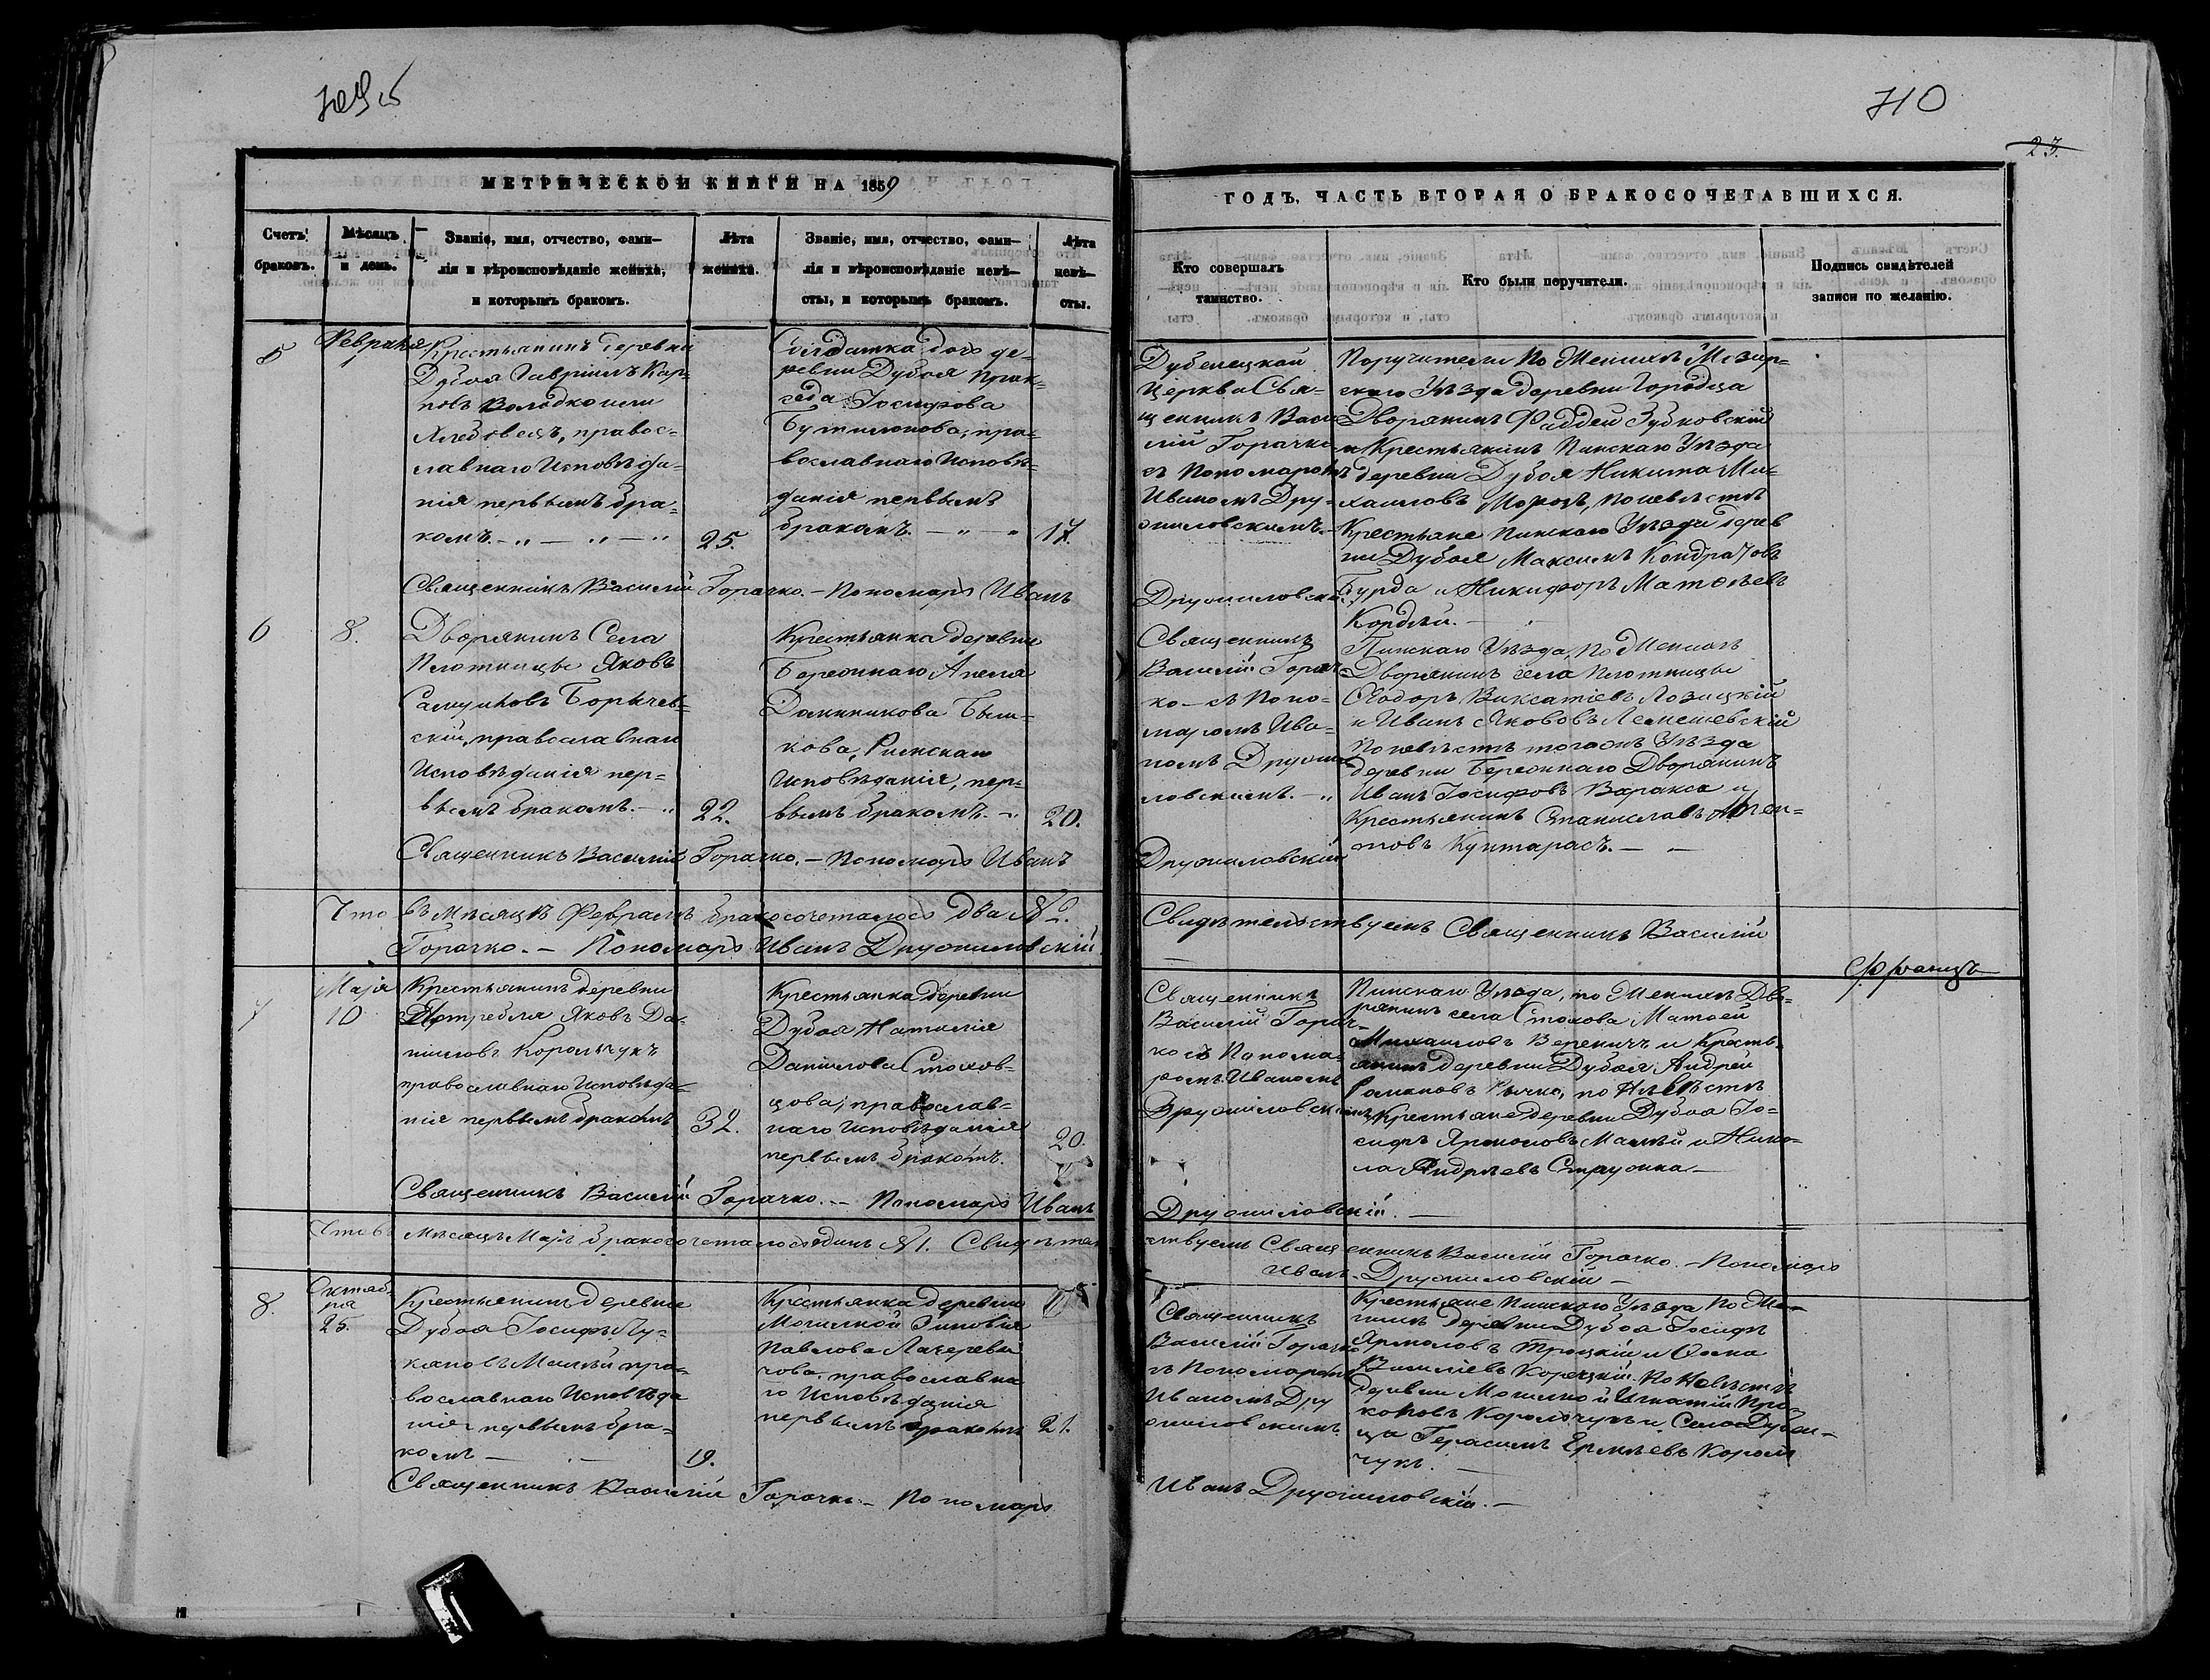 710
23.
МЕТРИЧЕСКОЙ КНИГИ НА 1859
Счетъ браковъ.
Мѣсяцъ и день.
Званіе, имя, отчество, фами-
лія и вѣроисповѣданіе жениха,
и которымъ бракомъ.
Лѣта жениха.
Званіе, имя, отчество, фами-
лія и вѣроисповѣданіе невѣ-
сты, и которымъ бракомъ.
Лѣта невѣ-
сты.
ГОДЪ, ЧАСТЬ ВТОРАЯ О БРАКОСОЧЕТАВШИХСЯ.
Кто совершалъ
таинство.
Кто были поручители.
Подпись свидѣтелей
записи по желанію.
5
Февраля
1
Крестьянинъ деревни
Дубоя Гавріилъ Кар-
повъ Володко или
правос-
лавнаго Исповѣда-
нія первымъ бра-
комъ.
25.
Солдатка дочь де-
ревни Дубоя Прак-
седа Іосифова
пра-
вославнаго Исповѣ-
данія первымъ
бракомъ.
17.
Дубенецкой
Церкви Свя-
щенникъ Васи-
лій Горачко
съ Пономаромъ
Иваномъ Дру-
жиловскимъ.
Поручители по Женихѣ Мозыр-
скаго Уѣзда деревни Городца
Дворянинъ Фаддей Зубковскій
и Крестьянинъ Пинскаго Уѣзда
деревни Дубоя Никита Ми-
хаиловъ Морозъ, по невѣстѣ
Крестьяне Пинскаго Уѣзда дерев
ни Дубоя Максимъ Кондратовъ
Бурда и Никифоръ Матвѣевъ
Кордѣй.
Священникъ Василій Горачко. - Пономарь Иванъ
Дружиловскій.
6
8.
Дворянинъ Села
Плотницы Яковъ
Самуиловъ Боричев-
скій, православнаго
Исповѣданія пер-
вымъ бракомъ.
22.
Крестьянка деревни
Бережнаго Анеля
Доминикова Былин-
кова, Римскаго
Исповѣданія, пер-
вымъ бракомъ.
20.
Священникъ
Василій Горач-
ко съ Поно-
маромъ Ива-
номъ Дружи-
ловскимъ.
Пинскаго Уѣзда, по Женихѣ
Дворянинъ села Плотницы
Ѳеодоръ Лозицкій
и Иванъ Якововъ Лемешевскій
по невѣстѣ тогожъ Уѣзда
деревни Бережнаго Дворянинъ
Иванъ Іосифовъ Варакса и
Крестьянинъ Станиславъ
Кунтарасъ.
Священникъ Василій Горачко. - Пономарь Иванъ
Дружиловскій
Что въ мѣсяцѣ Февралѣ бракосочеталось два № 2.
Свидѣтельствуемъ Священникъ Василій
Горачко. - Пономарь Иванъ Дружиловскій
7
Маія
10
Крестьянинъ деревни
Ястребля Яковъ Да-
ниловъ Корольчукъ
православнаго Исповѣда-
нія первымъ бракомъ
32.
Крестьянка деревни
Дубоя Наталія
Данилова Стахов-
цова, православ-
наго Исповѣданія
первымъ бракомъ.
20.
Священникъ
Василій Горач-
ко съ Понома-
ромъ Иваномъ
Дружиловскимъ
Пинскаго Уѣзда, по Женихѣ Дво-
рянинъ села Стахова Матвей
Михаиловъ Вереничъ и Кресть-
янинъ деревни Дубоя Андрей
Романовъ Кычко, по Невѣстѣ
Крестьяне деревни Дубоя Іо-
сифъ Ярмоловъ Малѣй и Нико-
ла Андрѣевъ Стружка
Священникъ Василій Горачко. - Пономарь Иванъ
Дружиловскій.
Что въ мѣсяцѣ Маіѣ бракосочеталось одинъ № 1. Свидѣтель-
ствуемъ Священникъ Василій Горачко. - Пономарь
Иванъ Дружиловскій
8.
Октяб-
ря
25.
Крестьянинъ деревни
Дубоя Іосифъ Лу-
кановъ Малѣй пра-
вославнаго Исповѣда
нія первымъ бра-
комъ
19.
Крестьянка деревни
Могилной Зиновія
Павлова Лачереви
чова, православна
го Исповѣданія
первымъ бракомъ
21.
Священникъ
Василій Горачко
съ Пономаромъ
Иваномъ Дру
жиловскимъ
Крестьяне Пинскаго Уѣзда по Же-
нихѣ деревни Дубоя Іосифъ
Ярмоловъ Троцкій и Ѳома
Василіевъ Корецкій. По Невѣстѣ
деревни Могилной Игнатій Про-
коповъ Корольчукъ и Села Дубен-
ца Герасимъ Ермѣевъ Король
чукъ.
Священникъ Василій Горачко - Пономарь
Иванъ Дружиловскій.